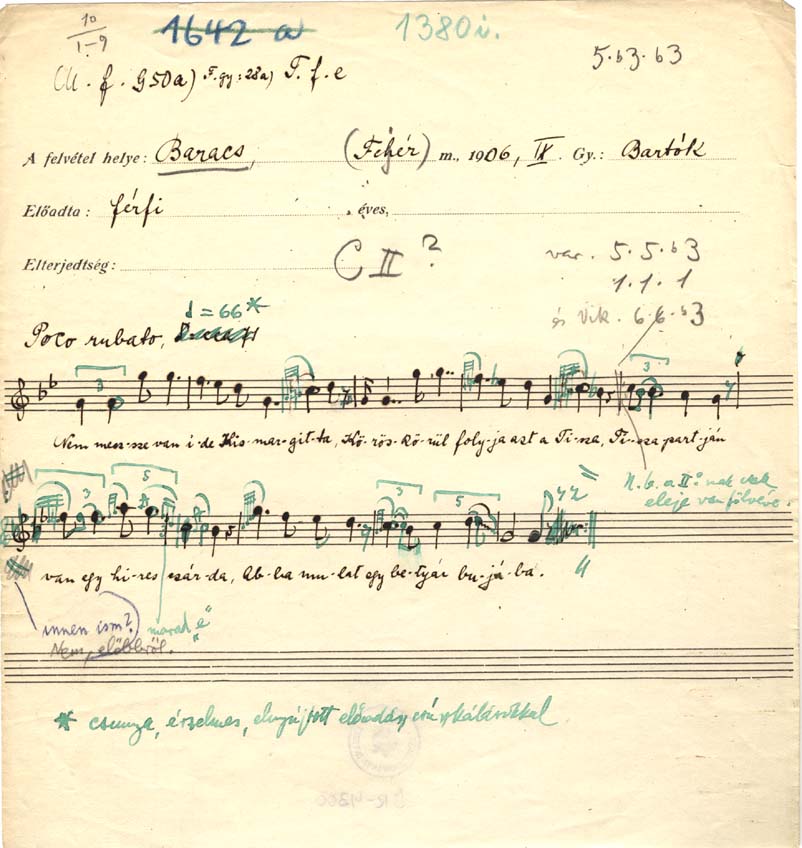 10
I-9
1642 a
1380i.
5.b3.b3
M.f. 950a) F.gy:28a) T.f.e
A felvétel helye: Baracs, (Fehér) m., 1906, IX. Gy.: Bartók
Előadta: férfi éves,
Elterjedtség:
C II ?
var. 5.5.b3
1.1.1
és Vik. 6.6.b3
= 66 *
Poco rubato,
3
3
Nem mesz-sze van i-de Kis-mar-git-ta, Kö-rös-kö-rül foly-ja azt a Ti-sza, Ti-sza part-ján
N.b. a II:nak csak
eleje van fölvéve.
3
5
3
5
van egy hi-res csár-da, Ab-ba mu-lat egy be-tyár bu-já-ba.
innen ism?
marad "e"
Nem, előbbről.
* csunya, érzelmes, elnyújtott előadás